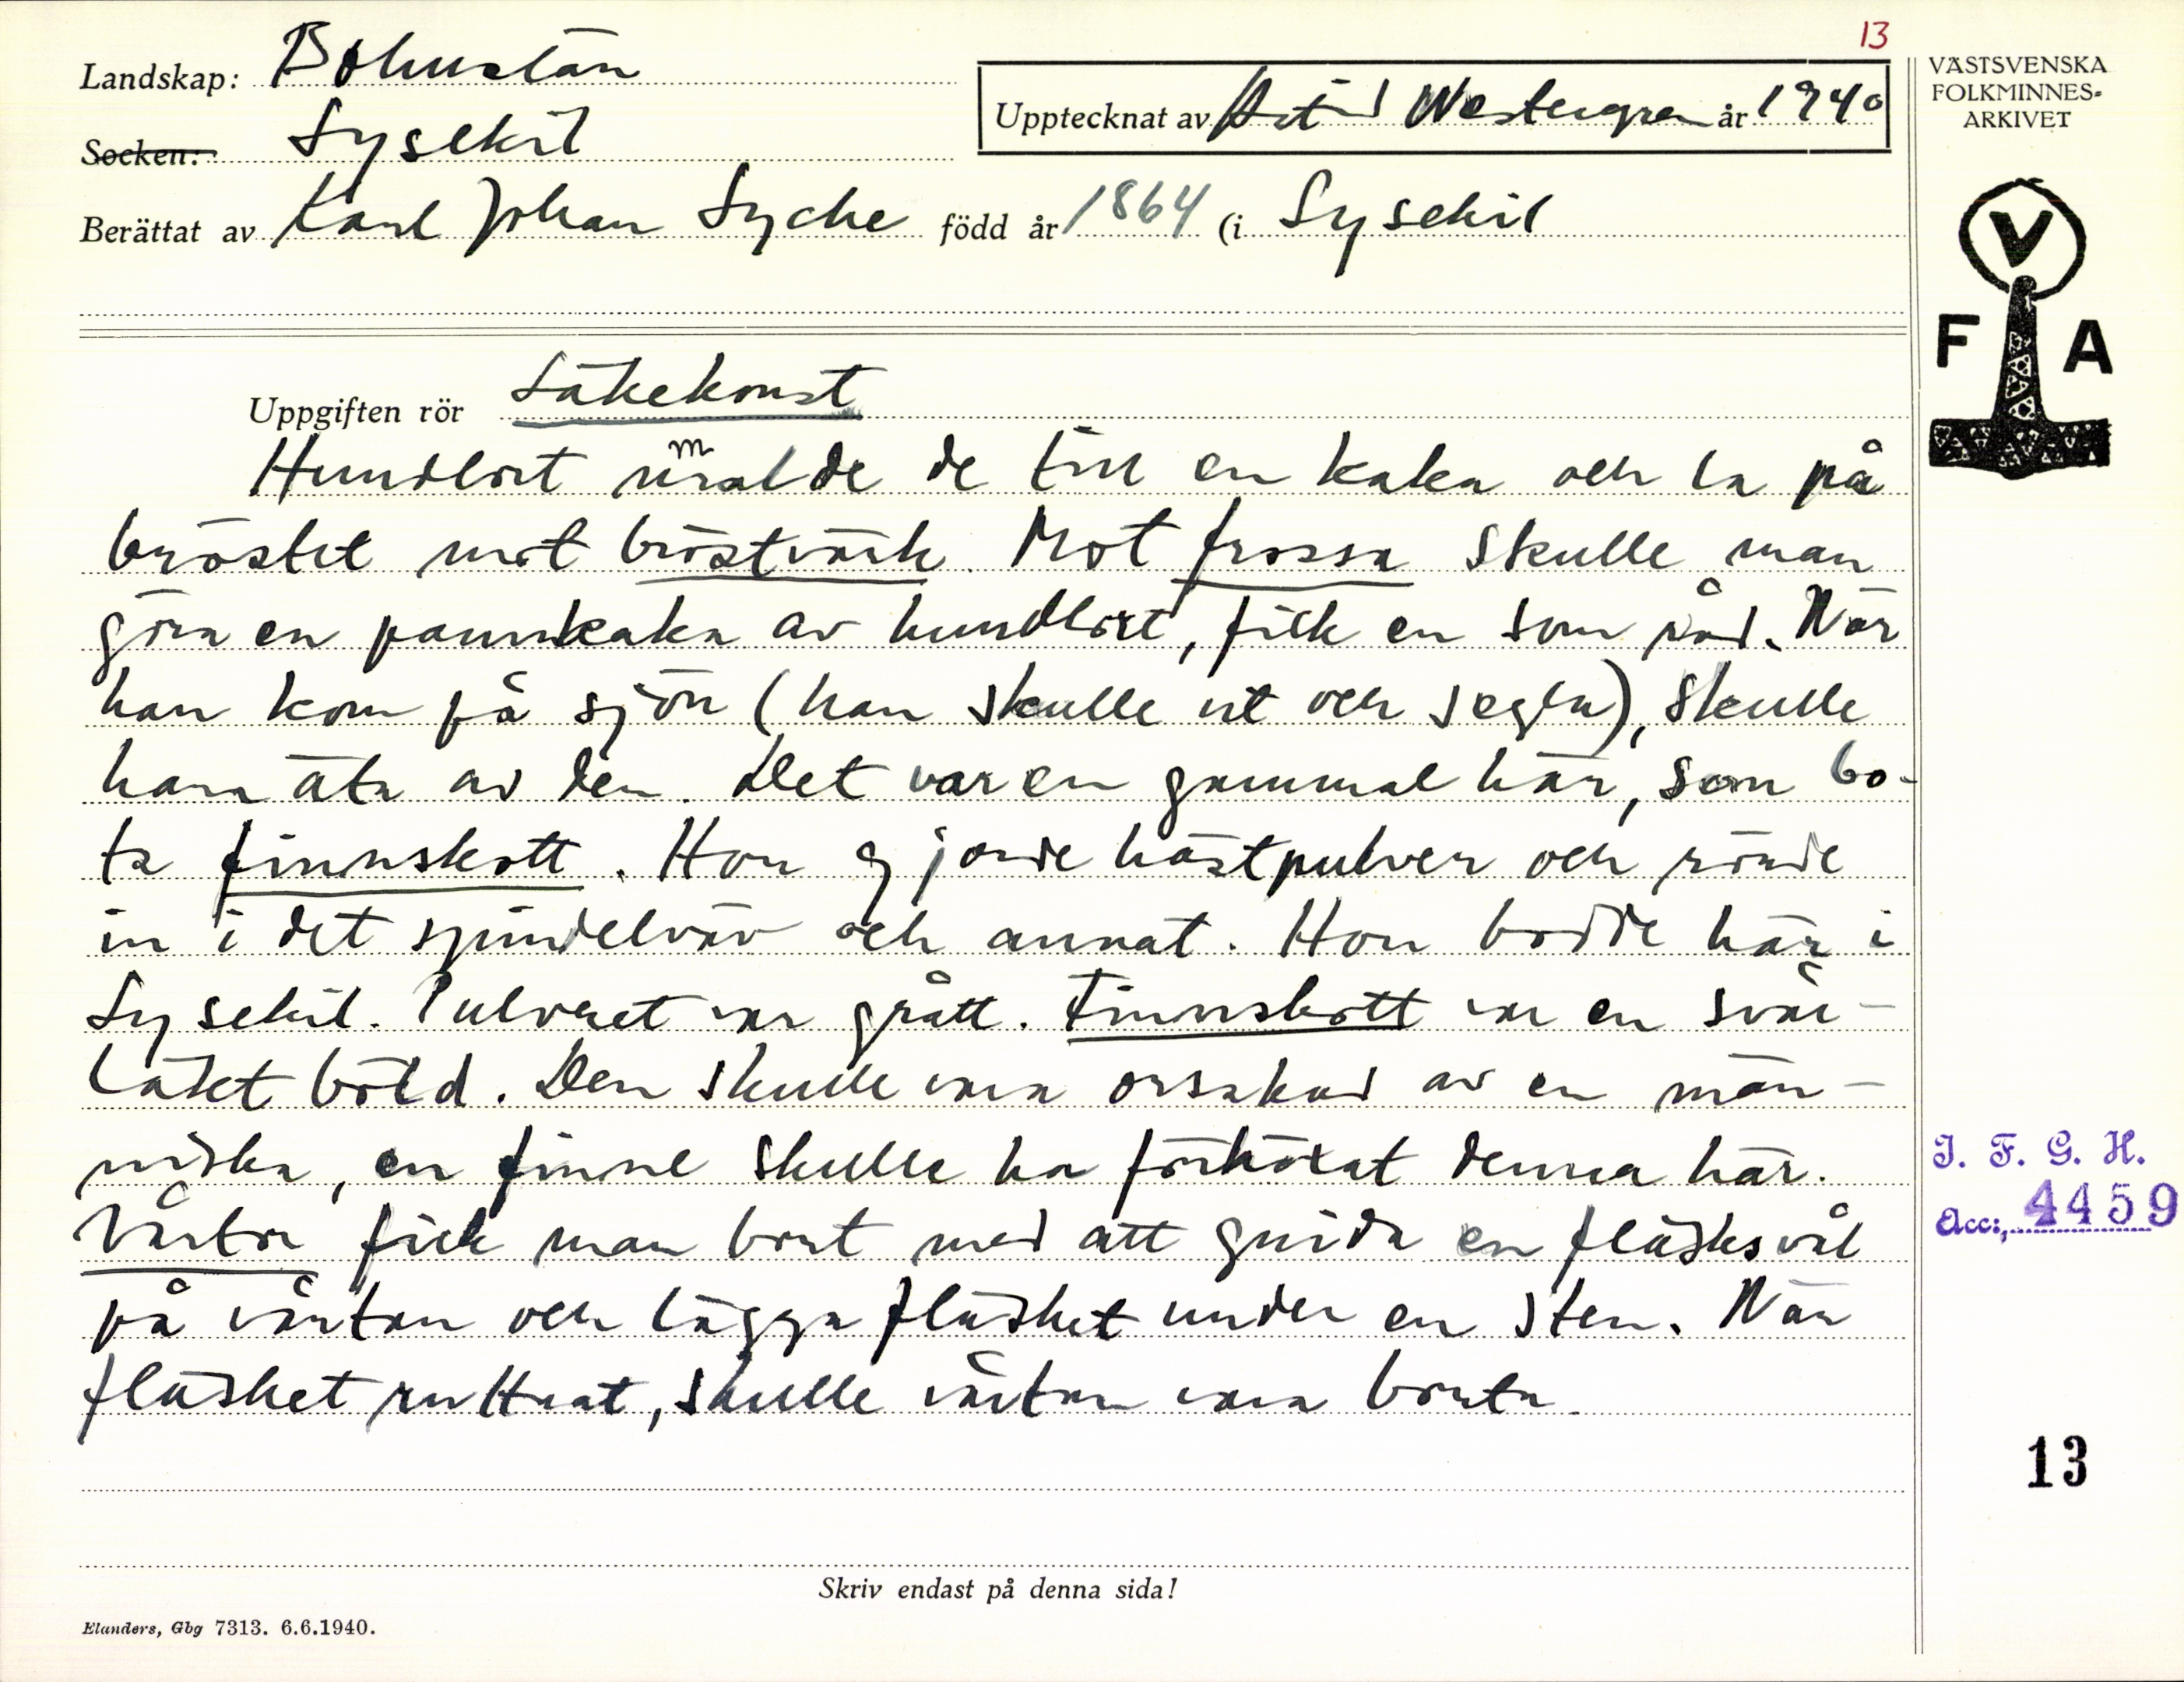 13
Landskap: Bohuslän
Socken: Lysekil
Upptecknat av Astrid Westergren år 1940
Berättat av Karl Johan Lycke född år 1864 (i Lysekil
VÄSTSVENSKA
FOLKMINNES-
ARKIVET
V
F A
Uppgiften rör Läkekonst
Hundlort malde de till en kaka och la på
bröstet mot bröstvärk. Mot frossa skulle man
göra en pannkaka av hundlort, fick en som råd. När
han kom på sjön (han skulle ut och segla), skulle
han äta av den. Det var en gammal här, som bo-
ta finnskott. Hon gjorde hästpulver och rörde
in i det spindelväv och annat. Hon bodde här i
Lysekil. Pulvret var grått. Finnskott var en svår-
läkt böld. Den skulle vara orsakad av en män-
niska, en finne skulle ha förhäxat denna här.
Vårtor fick man bort med att gnida en fläsksvål
på vårtan och lägga fläsket under en sten. När
fläsket ruttnat, skulle vårtan vara borta.
I. F. G. H.
Acc:, 4459
13
Skriv endast på denna sida!
Elanders, Gbg 7313. 6.6.1940.